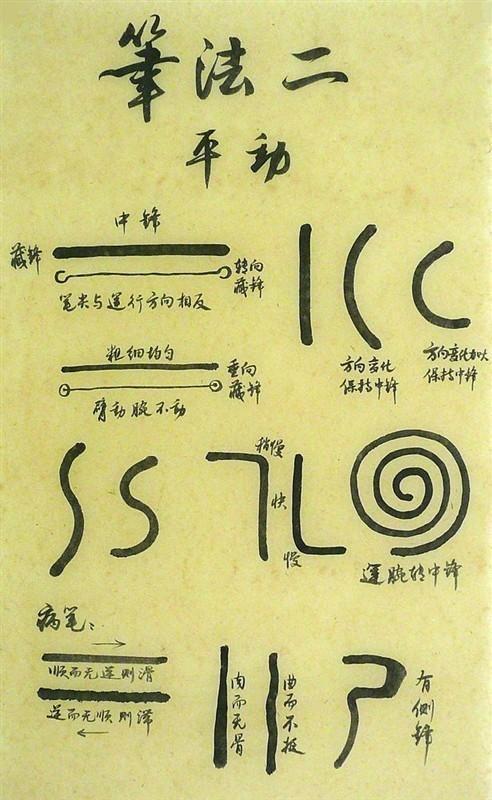 筆法二
平动
中锋
藏锋
转向
藏锋
笔尖与运行方向相反
方向变化
保持中锋
方向变化加以
保持中锋
粗细均匀
垂向
藏锋
臂动腕不动
稍慢
快
慢
运腕转中锋
病笔:
顺而无逆则滑
逆而无顺则滞
肉而无骨
曲而不挺
有侧锋